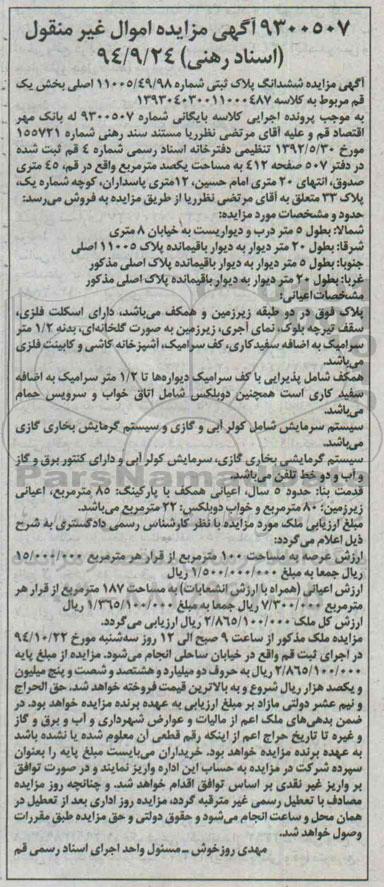 ۹۳۰۰۵۰۷ آگهی مزایده اموال غیر منقول
(اسناد رهنی) ۹۴/۹/۲۴
آگهی مزایده ششدانگ پلاک ثبتی شماره ۱۱۰۰۵/۴۹/۹۸ اصلی بخش یک
قم مربوط به کلاسه ۱۳۹۳۰۴۰۳۰۰۱۱۰۰۰۴۸۷
به موجب پرونده اجرایی کلاسه بایگانی شماره ۹۳۰۰۵۰۷ له بانک مهر
اقتصاد قم و علیه آقای مرتضی نظرریا مستند سند رهنی شماره ۱۵۵۷۲۱
مورخ ۱۳۹۲/۵/۳۰ تنظیمی دفترخانه اسناد رسمی شماره ۴ قم ثبت شده
در دفتر ۵۰۷ صفحه ۴۱۲ به مساحت یکصد مترمربع واقع در قم، ۴۵ متری
صدوق، انتهای ۲۰ متری امام حسین، ۱۲متری پاسداران، کوچه شماره یک،
پلاک ۳۳ متعلق به آقای مرتضی نظرریا از طریق مزایده به فروش می‌رسد:
حدود و مشخصات مورد مزایده:
شمالا: بطول ۵ متر درب و دیواریست به خیابان ۸ متری
شرقا: بطول ۲۰ متر دیوار به دیوار باقیمانده پلاک ۱۱۰۰۵ اصلی
جنوبا: بطول ۵ متر دیوار به دیوار باقیمانده پلاک اصلی مذکور
غربا: بطول ۲۰ متر دیوار به دیوار باقیمانده پلاک اصلی مذکور
مشخصات اعیانی:
پلاک فوق در دو طبقه زیرزمین و همکف می‌باشد، دارای اسکلت فلزی،
سقف تیرچه بلوک، نمای آجری، زیرزمین به صورت گلخانه‌ای، بدنه ۱/۲ متر
سرامیک به اضافه سفیدکاری، کف سرامیک، آشپزخانه کاشی و کابینت فلزی
می‌باشد.
همکف شامل پذیرایی با کف سرامیک دیواره‌ها تا ۱/۲ متر سرامیک به اضافه
سفید کاری است همچنین دوبلکس شامل اتاق خواب و سرویس حمام
می‌باشد.
سیستم سرمایش شامل کولر آبی و گازی و سیستم گرمایش بخاری گازی
می‌باشد.
سیستم گرمایشی بخاری گازی، سرمایش کولر آبی و دارای کنتور برق و گاز
و آب و دو خط تلفن می‌باشد.
قدمت بنا: حدود ۵ سال، اعیانی همکف با پارکینگ: ۸۵ مترمربع، اعیانی
زیرزمین: ۸۰ مترمربع و خواب دوبلکس: ۲۲ مترمربع می‌باشد.
مبلغ ارزیابی ملک مورد مزایده با نظر کارشناس رسمی دادگستری به شرح
ذیل اعلام می‌گردد:
ارزش عرصه به مساحت ۱۰۰ مترمربع از قرار هر مترمربع ۱۵/۰۰۰/۰۰۰
ریال جمعا به مبلغ ۱/۵۰۰/۰۰۰/۰۰۰ ریال
ارزش اعیانی (همراه با ارزش انشعابات) به مساحت ۱۸۷ مترمربع از قرار هر
مترمربع ۷/۳۰۰/۰۰۰ ریال جمعا به مبلغ ۱/۳۶۵/۱۰۰/۰۰۰ ریال
ارزش کل ملک ۲/۸۶۵/۱۰۰/۰۰۰ ریال ارزیابی می‌گردد.
مزایده ملک مذکور از ساعت ۹ صبح الی ۱۲ روز سه‌شنبه مورخ ۹۴/۱۰/۲۲
در اجرای ثبت قم واقع در خیابان ساحلی انجام می‌شود. مزایده از مبلغ پایه
۲/۸۶۵/۱۰۰/۰۰۰ ریال به حروف دو میلیارد و هشتصد و شصت و پنج میلیون
و یکصد هزار ریال شروع و به بالاترین قیمت فروخته خواهد شد. حق الحراج
و نیم عشر دولتی مازاد بر مبلغ ارزیابی به عهده برنده مزایده خواهد بود. در
ضمن بدهی‌های ملک اعم از مالیات و عوارض شهرداری و آب و برق و گاز
و غیره تا تاریخ حراج اعم از اینکه رقم قطعی آن معلوم شده یا نشده باشد
به عهده برنده مزایده خواهد بود. خریداران می‌بایست مبلغ پایه را بعنوان
سپرده شرکت در مزایده به حساب این اداره واریز نمایند و در صورت توافق
بر واریز غیر نقدی بر اساس توافق اقدام خواهد شد. و چنانچه روز مزایده
مصادف با تعطیل رسمی غیر مترقبه گردد، مزایده روز اداری بعد از تعطیل در
همان محل و ساعت انجام می‌شود و حقوق دولتی و حق مزایده طبق مقررات
وصول خواهد شد.
مهدی روزخوش ـ مسئول واحد اجرای اسناد رسمی قم